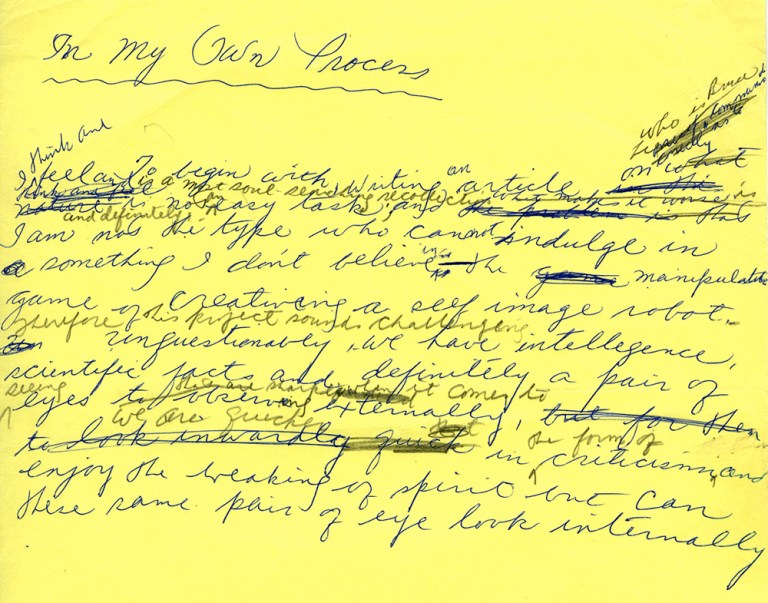 In My Own Process
who is Bruce
think and
I feel To begin with, writing an article on what
is a most soul-searching recollection what makes it worse is
is no easy task, and this
and definitely
I am not the type who cannot indulge in
a something I don't believe in the manipulate
game of creativing a self image robot.
Therefore this project sounds challenging
Unquestionably, we have intellegence,
scientific facts and definitely a pair of
seeing they are sharp when it comes to
eyes to observing externally, but for them
we are quick the form of
to look inwardly quick in criticisms, and
enjoy the breaking of spirit but can
these same pair of eye look internally